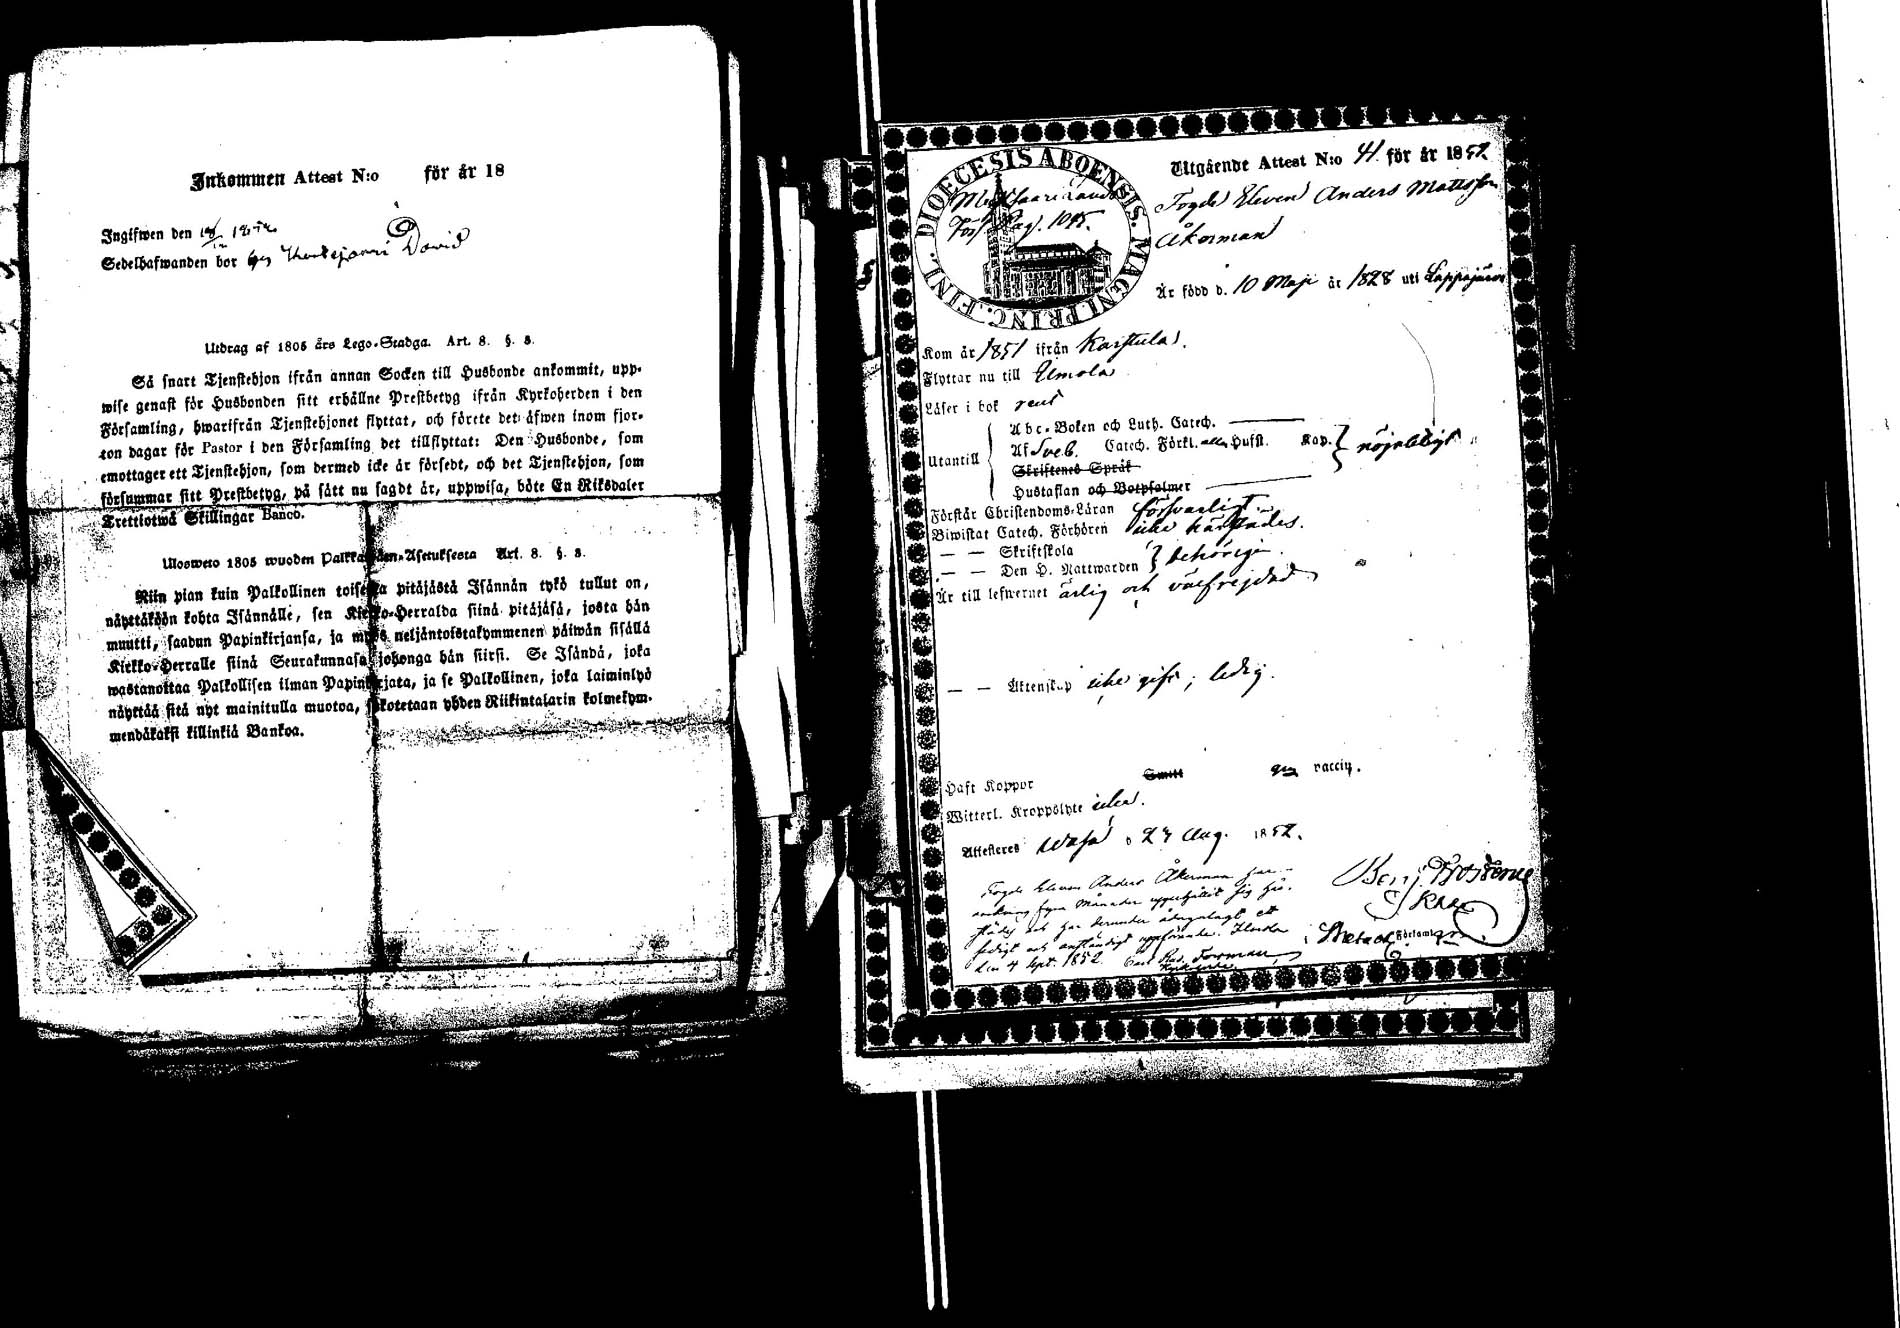 Inkommen Attest N:o för år 18
Ingifwen den
Sedelhafwanden bor hos David
Utdrag af 1805 års Lego-Stadga. Art. 8. §. 8.
Så snart Tjenstehjon ifrån annan Socken till Husbonde ankommit, upp-
wise genast för Husbonden sitt erhållne Prestbetyg ifrån Kyrkoherden i den
Församling, hwarifrån Tjenstehjonet flyttat, och förete det äfwen inom fjor-
ton dagar för Pastor i den Församling det tillflyttat: Den Husbonde, som
emottager ett Tjenstehjon, som dermed icke är försedt, och det Tjenstehjon, som
försummar sitt Prestbetyg, på sätt nu sagdt är, uppwisa, böte En Riksdaler
Trettiotwå Skillingar Banco.
Ulosweto 1805 wuoden Palkkawäen-Asetuksesta Art. 8. §. 8.
Niin pian kuin Palkollinen toisesta pitäjästä Isännän tykö tullut on,
näyttäköön kohta Isännälle, sen Kirkko-Herralda siinä pitäjäsä, josta hän
muutti, saadun Papinkirjansa, ja myös neljäntoistakymmenen päiwän sisällä
Kirkko-Herralle siinä Seurakunnasa johonga hän siirsi. Se Isändä, joka
wastanottaa Palkollisen ilman Papinkirjata, ja se Palkollinen, joka laiminlyö
näyttää sitä nyt mainitulla muotoa, sakotetaan yhden Riikintalarin kolmekym-
mendäkaksi killinkiä Bankoa.
DIOECESIS ABOENSIS. MAGNI. PRINC. FINL.
Förs. Pag. 1015.
Utgående Attest N:o 41. för år 1852
Fogde Eleven Anders Mattsson
Åkerman
Är född d. 10 Maji år 1828 uti Lappajärvi
Kom år 1851 ifrån Karstula.
Flyttar nu till Elmola
Läser i bok rent
Utantill
Abc-Boken och Luth. Catech.
Af Sveb. Catech. Förkl. alla Hufst. Kap. nöjaktigt
Skriftenes Språk
Hustaflan och Botpsalmer
Förstår Christendoms-Läran försvarligt
Biwistat Catech. Förhören icke härstädes.
— — Skriftskola
— — Den H. Nattwarden behörigen.
Är till lefwernet ärlig och välfrejdad
— — Äktenskap icke gift; ledig.
Haft Koppor Smitt gm vaccin.
Witterl. Kroppslyte icke.
Attesteras Wasa d 27 Aug. 1852.
Fogde Eleven Anders Åkerman har
fyra Månader uppehållit sig här-
städes och har derunder ådagalagt ett
ledigt och anständigt uppförande.
den 4 Sept. 1852. Forsman
Kyrkoherde
Benj. Frosterus
Församl.